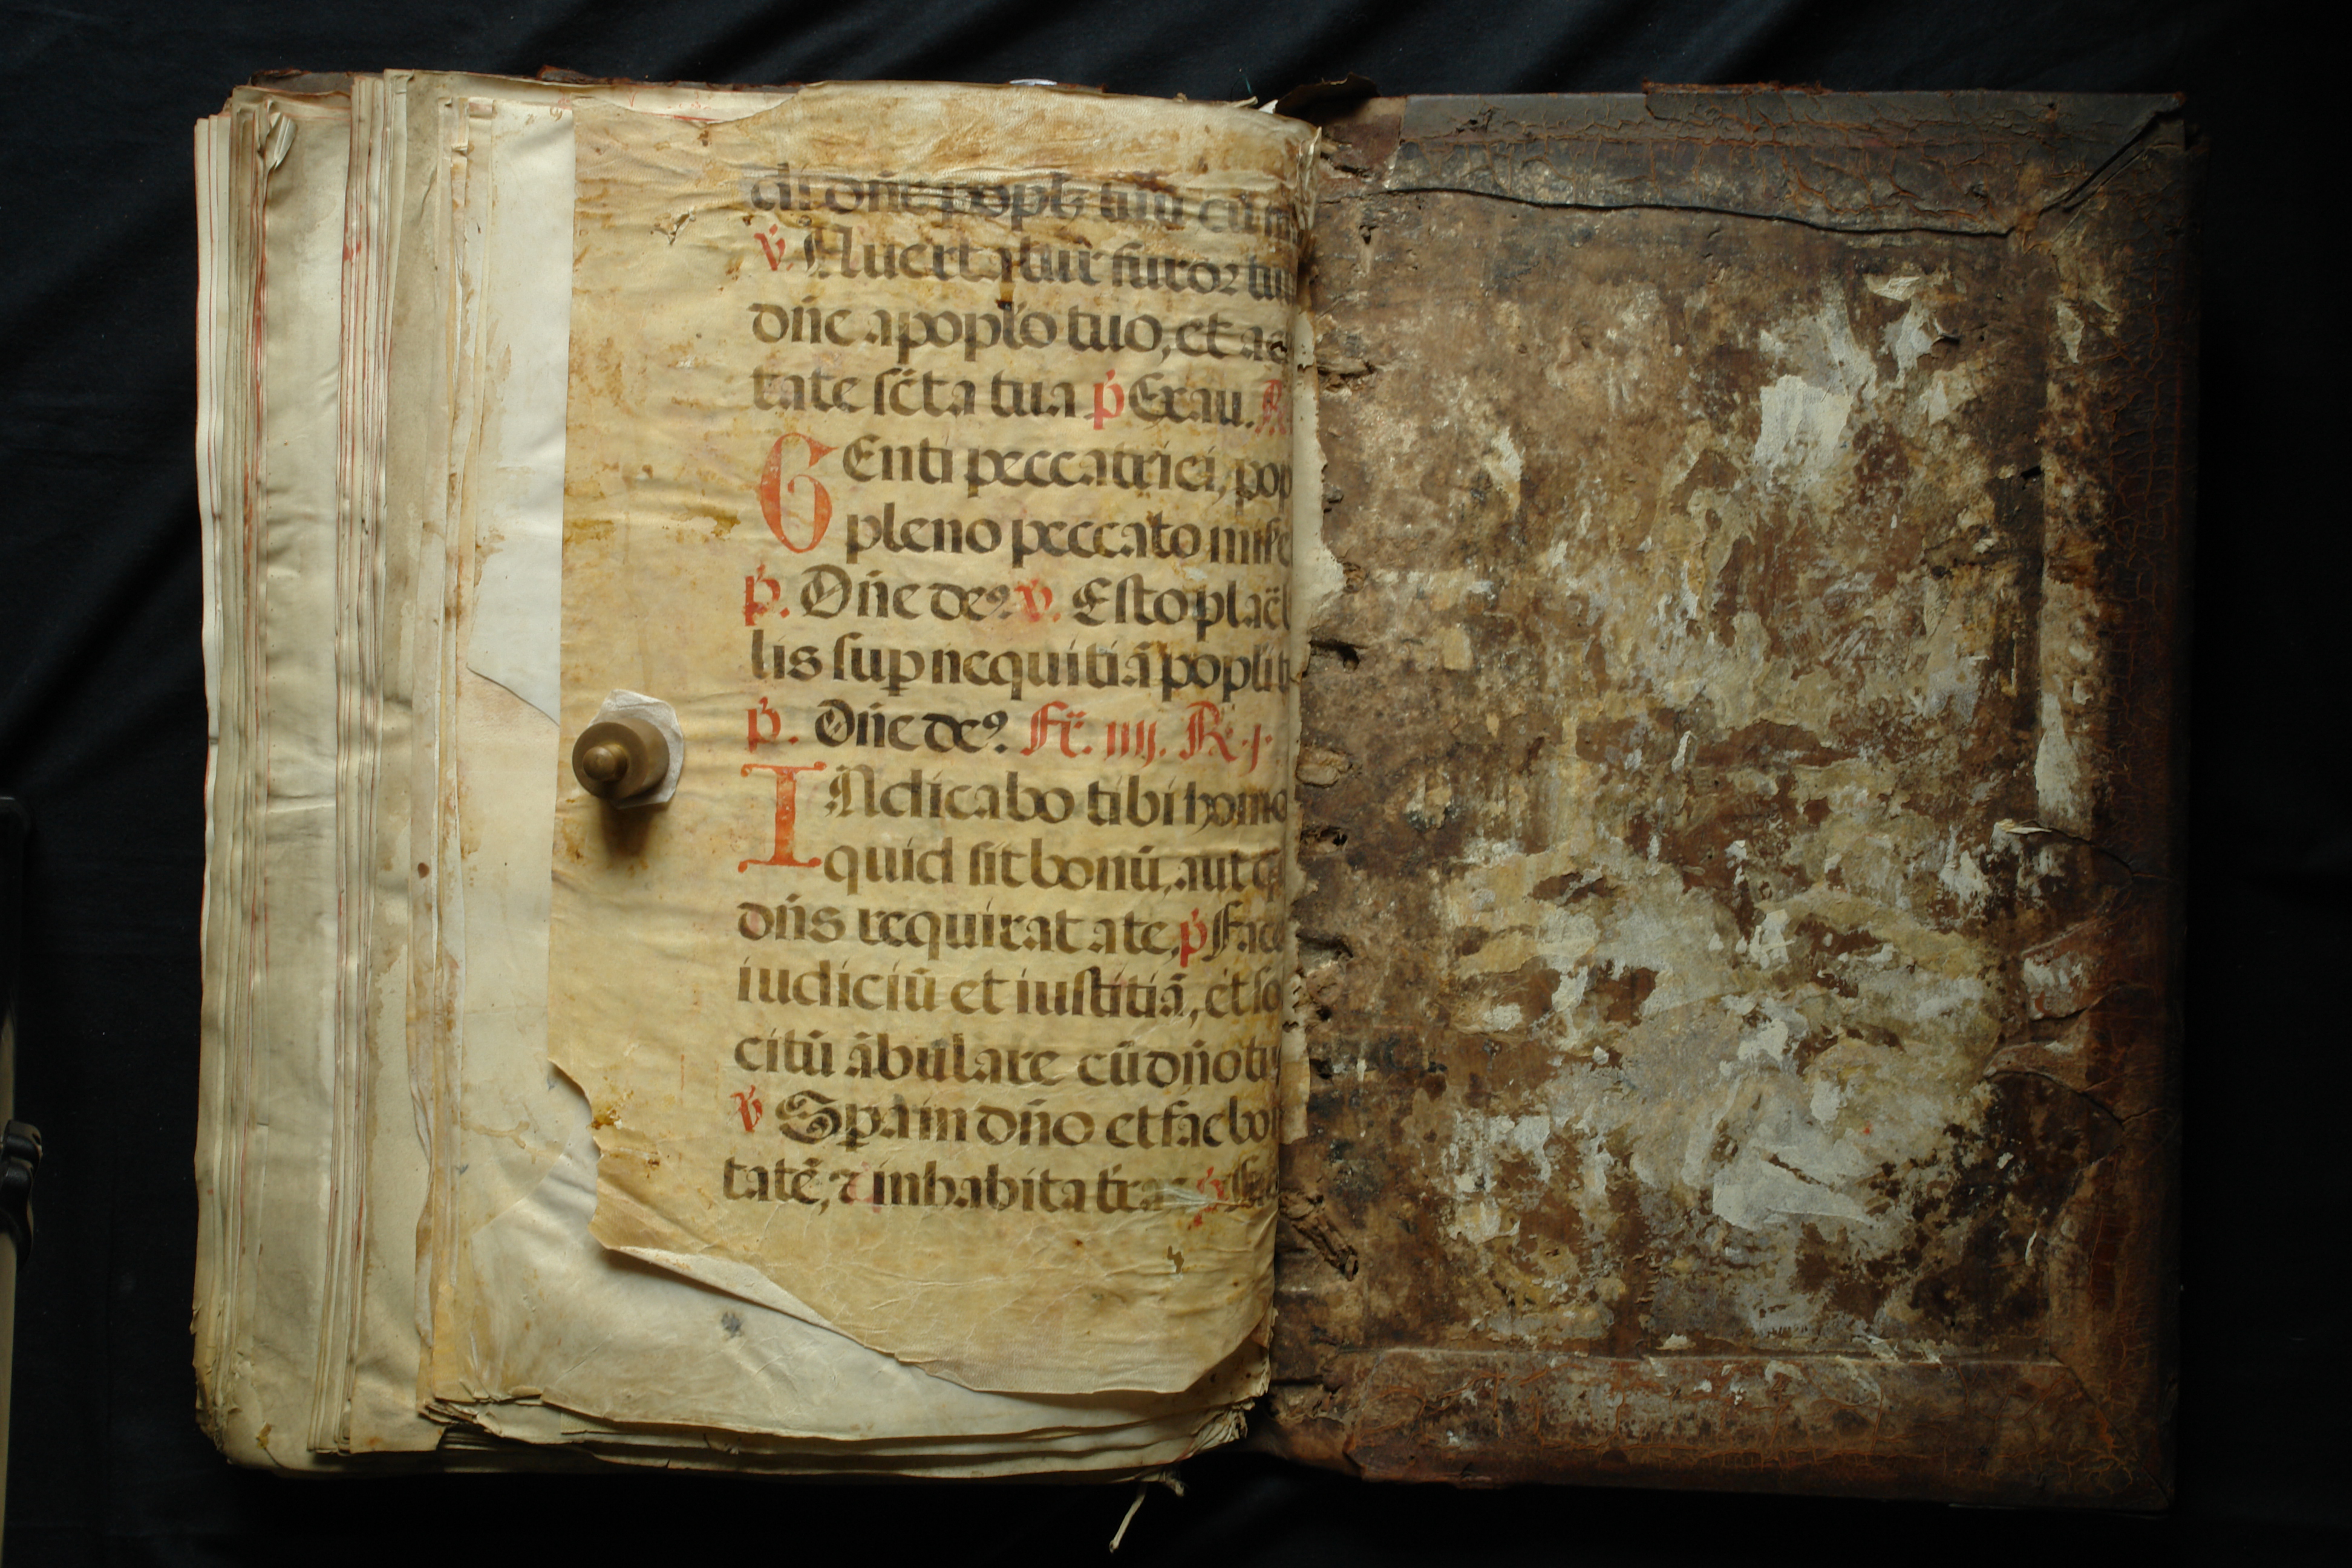 di dñe popl̃ tuũ cũ
v̇. Auertatur̃ furor tuu
dñe a poplo tuo, et a
tate sc̃ta tua ṗ Exau. R.
GEnti peccatrici, pop
pleno peccato mise
ṗ. Dñe deꝰ. v̇. Esto placa
lis sup nequitiã popli t
ṗ. Dñe deꝰ. Fẽ. iiij. R. j.
INdicabo tibi homo
quid sit bonũ, aut q
dñs requirat a te, ṗ Face
iudiciũ et iustitiã, et so
citũ ãbulare cũ dño tu
v̇ Spa in dño et fac bo
tatẽ, ꝛ inhabita tr̃a ṗ Fac